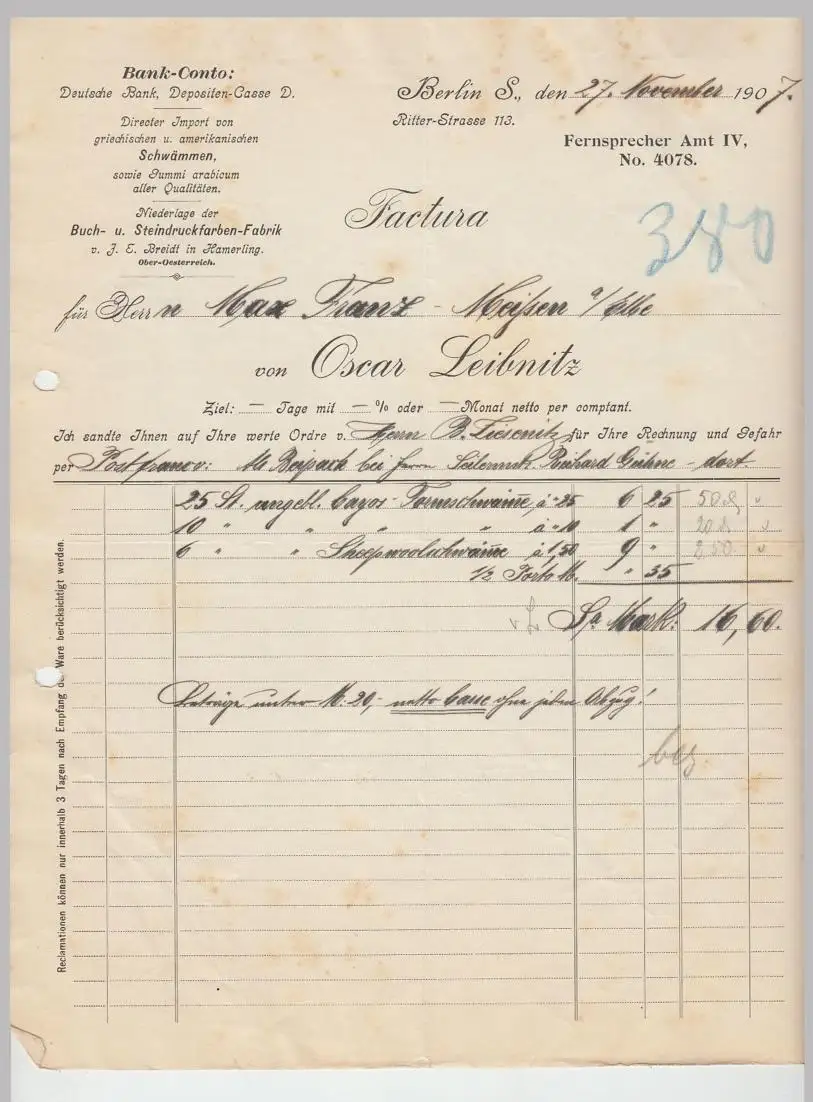 Bank-Conto:
Deutsche Bank, Depositen-Casse D.
Directer Import von
griechischen u. amerikanischen
Schwämmen,
sowie Gummi arabicum
aller Qualitäten.
Niederlage der
Buch- u. Steindruckfarben-Fabrik
v. J. E. Breidt in Hamerling.
Ober-Oesterreich.
Berlin S., den 27. November 1907.
Ritter-Strasse 113.
Fernsprecher Amt IV,
No. 4078.
Factura
380
für Herrn Max Franz - Meißen a/Elbe
von Oscar Leibnitz
Ziel: — Tage mit — % oder — Monat netto per comptant.
Ich sandte Ihnen auf Ihre werte Ordre v. Herrn B. Liesenitz für Ihre Rechnung und Gefahr
per Postfranco: Beipack bei Herrn Richard Gühne - dort.
25 St. ungebl. Formschwämme à "25 6 25 50
10 " " " à "10 1 " 20
6 " " Sheepwoolschwämme à 1,50 9 " 2,50
1/2 Porto M. " 35
Sa Mark: 16,60.
Beträge unter M. 20,- netto Casse ohne jeden Abzug!
bez
Reclamationen können nur innerhalb 3 Tagen nach Empfang der Ware berücksichtigt werden.